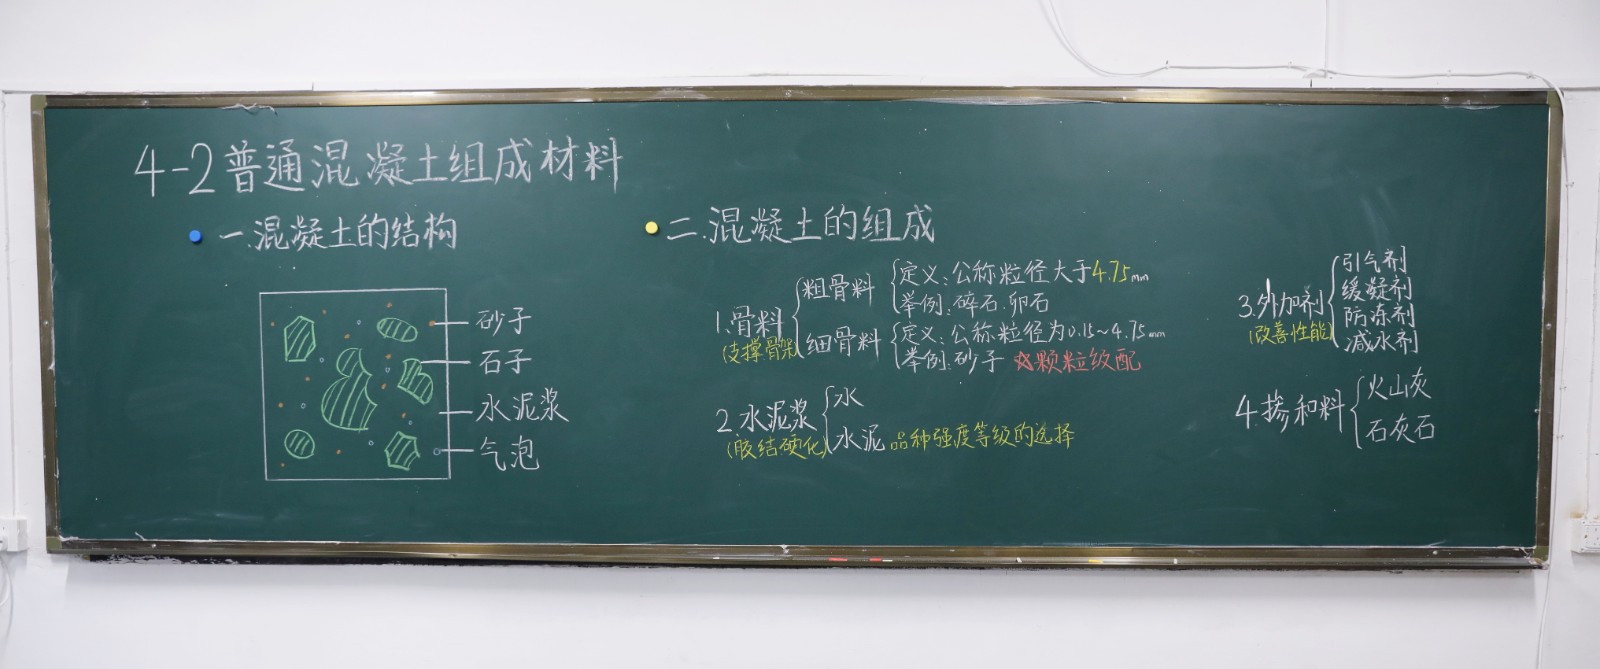 4-2普通混凝土组成材料
一.混凝土的结构
砂子
石子
水泥浆
气泡
二.混凝土的组成
1.骨料
(支撑骨架)
粗骨料
定义:公称粒径大于4.75mm
举例:碎石.卵石
细骨料
定义:公称粒径为0.15~4.75mm
举例:砂子 ☆颗粒级配
2.水泥浆
(胶结硬化)
水
水泥 品种强度等级的选择
3.外加剂
(改善性能)
引气剂
缓凝剂
防冻剂
减水剂
4.掺和料
火山灰
石灰石